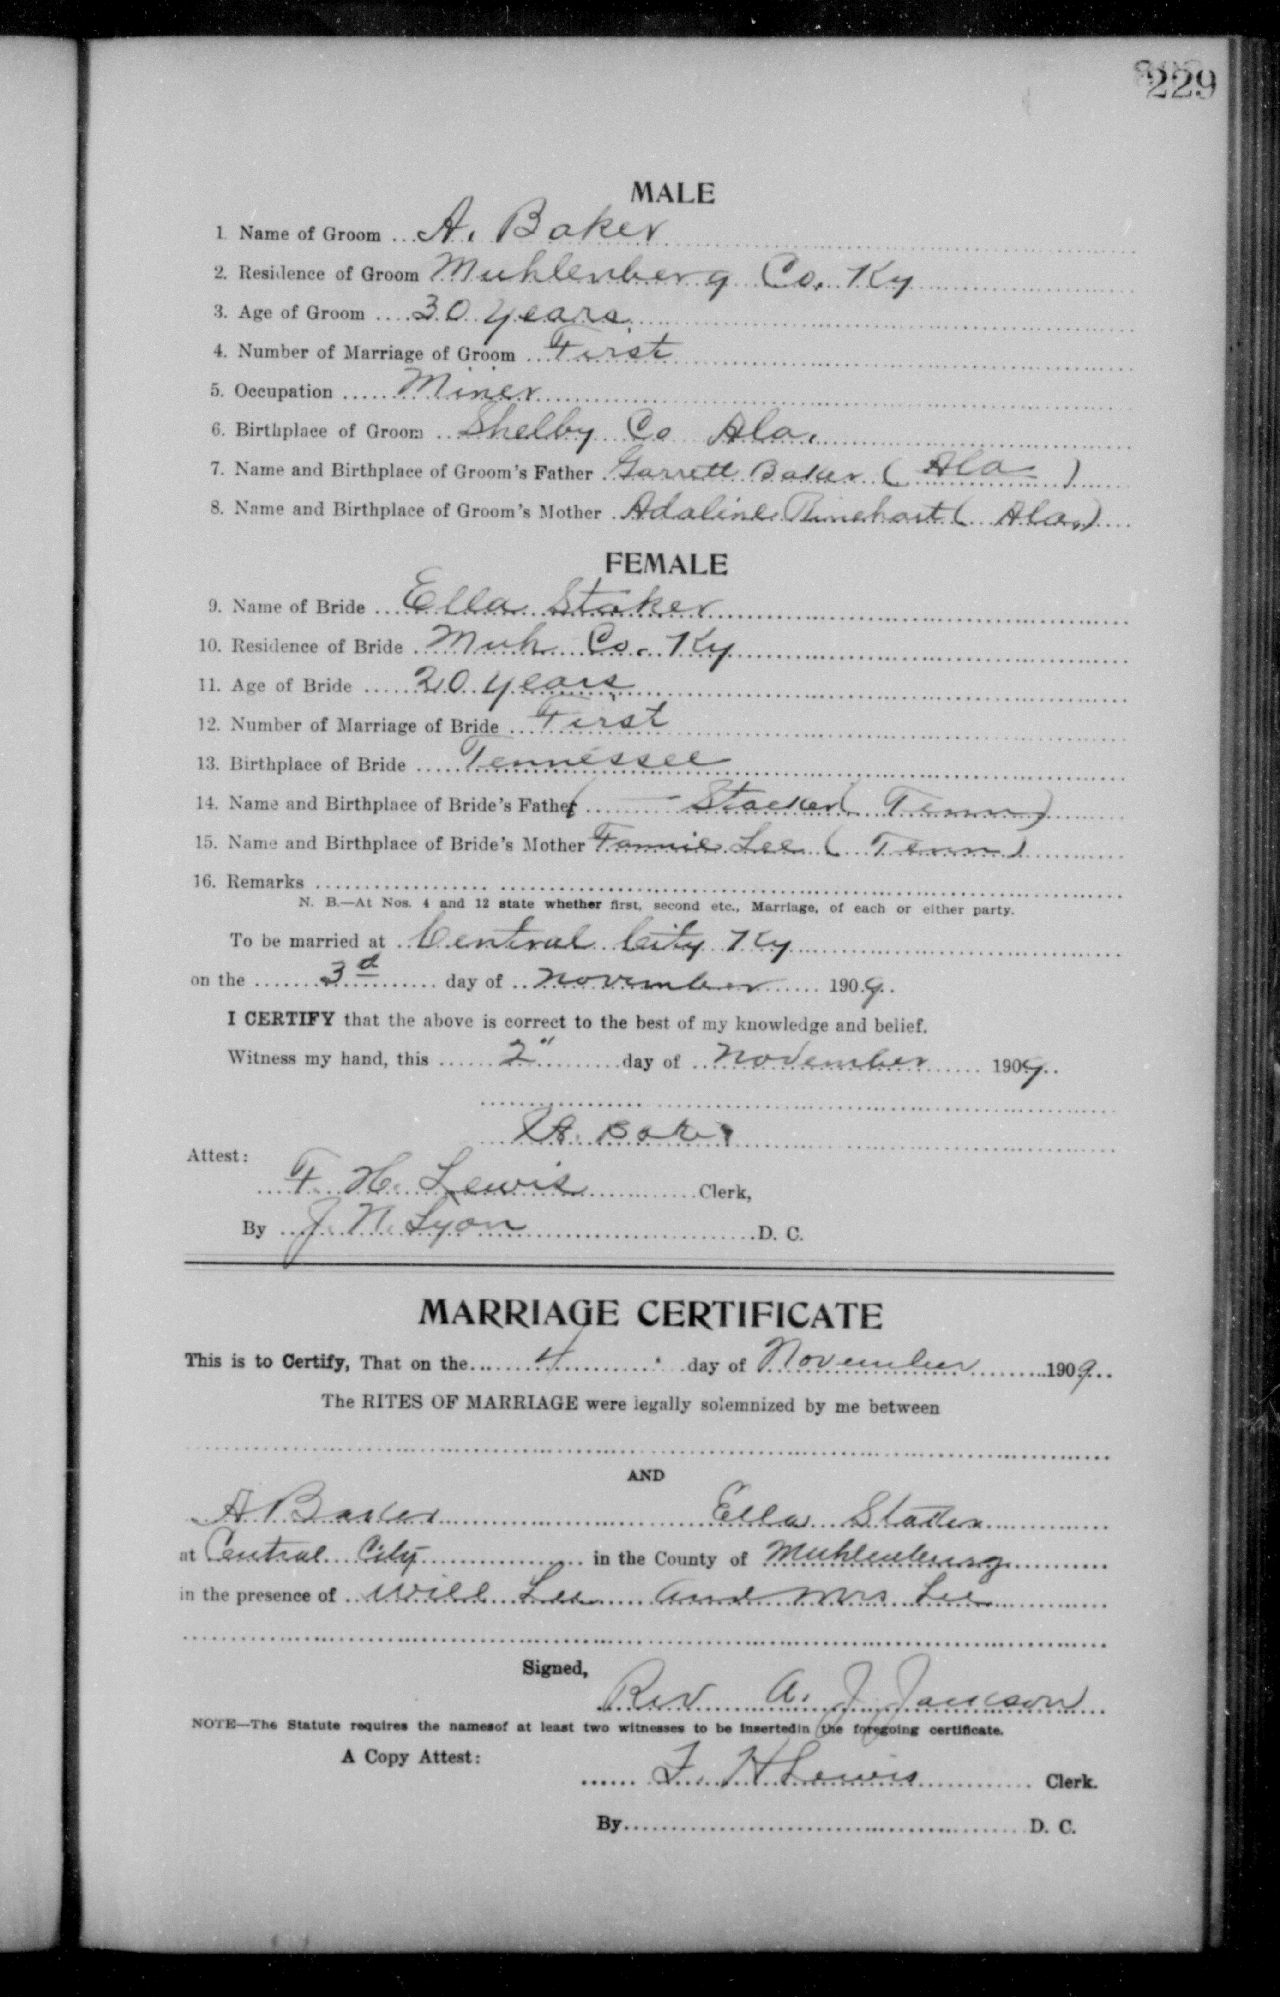 229
MALE
1. Name of Groom A. Baker
2. Residence of Groom Muhlenberg Co. Ky
3. Age of Groom 30 years
4. Number of Marriage of Groom First
5. Occupation Miner
6. Birthplace of Groom Shelby Co Ala.
7. Name and Birthplace of Groom's Father Garrett Baker ( Ala )
8. Name and Birthplace of Groom's Mother Adaline Rinehart ( Ala.)
FEMALE
9. Name of Bride Ella Staker
10. Residence of Bride Muh Co. Ky
11. Age of Bride 20 years
12. Number of Marriage of Bride First
13. Birthplace of Bride Tennessee
14. Name and Birthplace of Bride's Father — Stacker ( Tenn )
15. Name and Birthplace of Bride's Mother Fannie Lee ( Tenn )
16. Remarks
N. B.—At Nos. 4 and 12 state whether first, second etc., Marriage, of each or either party.
To be married at Central City Ky
on the 3d day of November 1909.
I CERTIFY that the above is correct to the best of my knowledge and belief.
Witness my hand, this 2" day of November 1909.
A. Baker
Attest:
F. H. Lewis Clerk,
By J. N. Lyon D. C.
MARRIAGE CERTIFICATE
This is to Certify, That on the 4 day of November 1909
The RITES OF MARRIAGE were legally solemnized by me between
AND
A Baker Ella
at Central City in the County of Muhlenburg
in the presence of Will Lee and Mrs Lee
Signed,
Rev A. J. Jameson
NOTE—The Statute requires the namesof at least two witnesses to be insertedin the foregoing certificate.
A Copy Attest:
F. H Lewis Clerk.
By D. C.